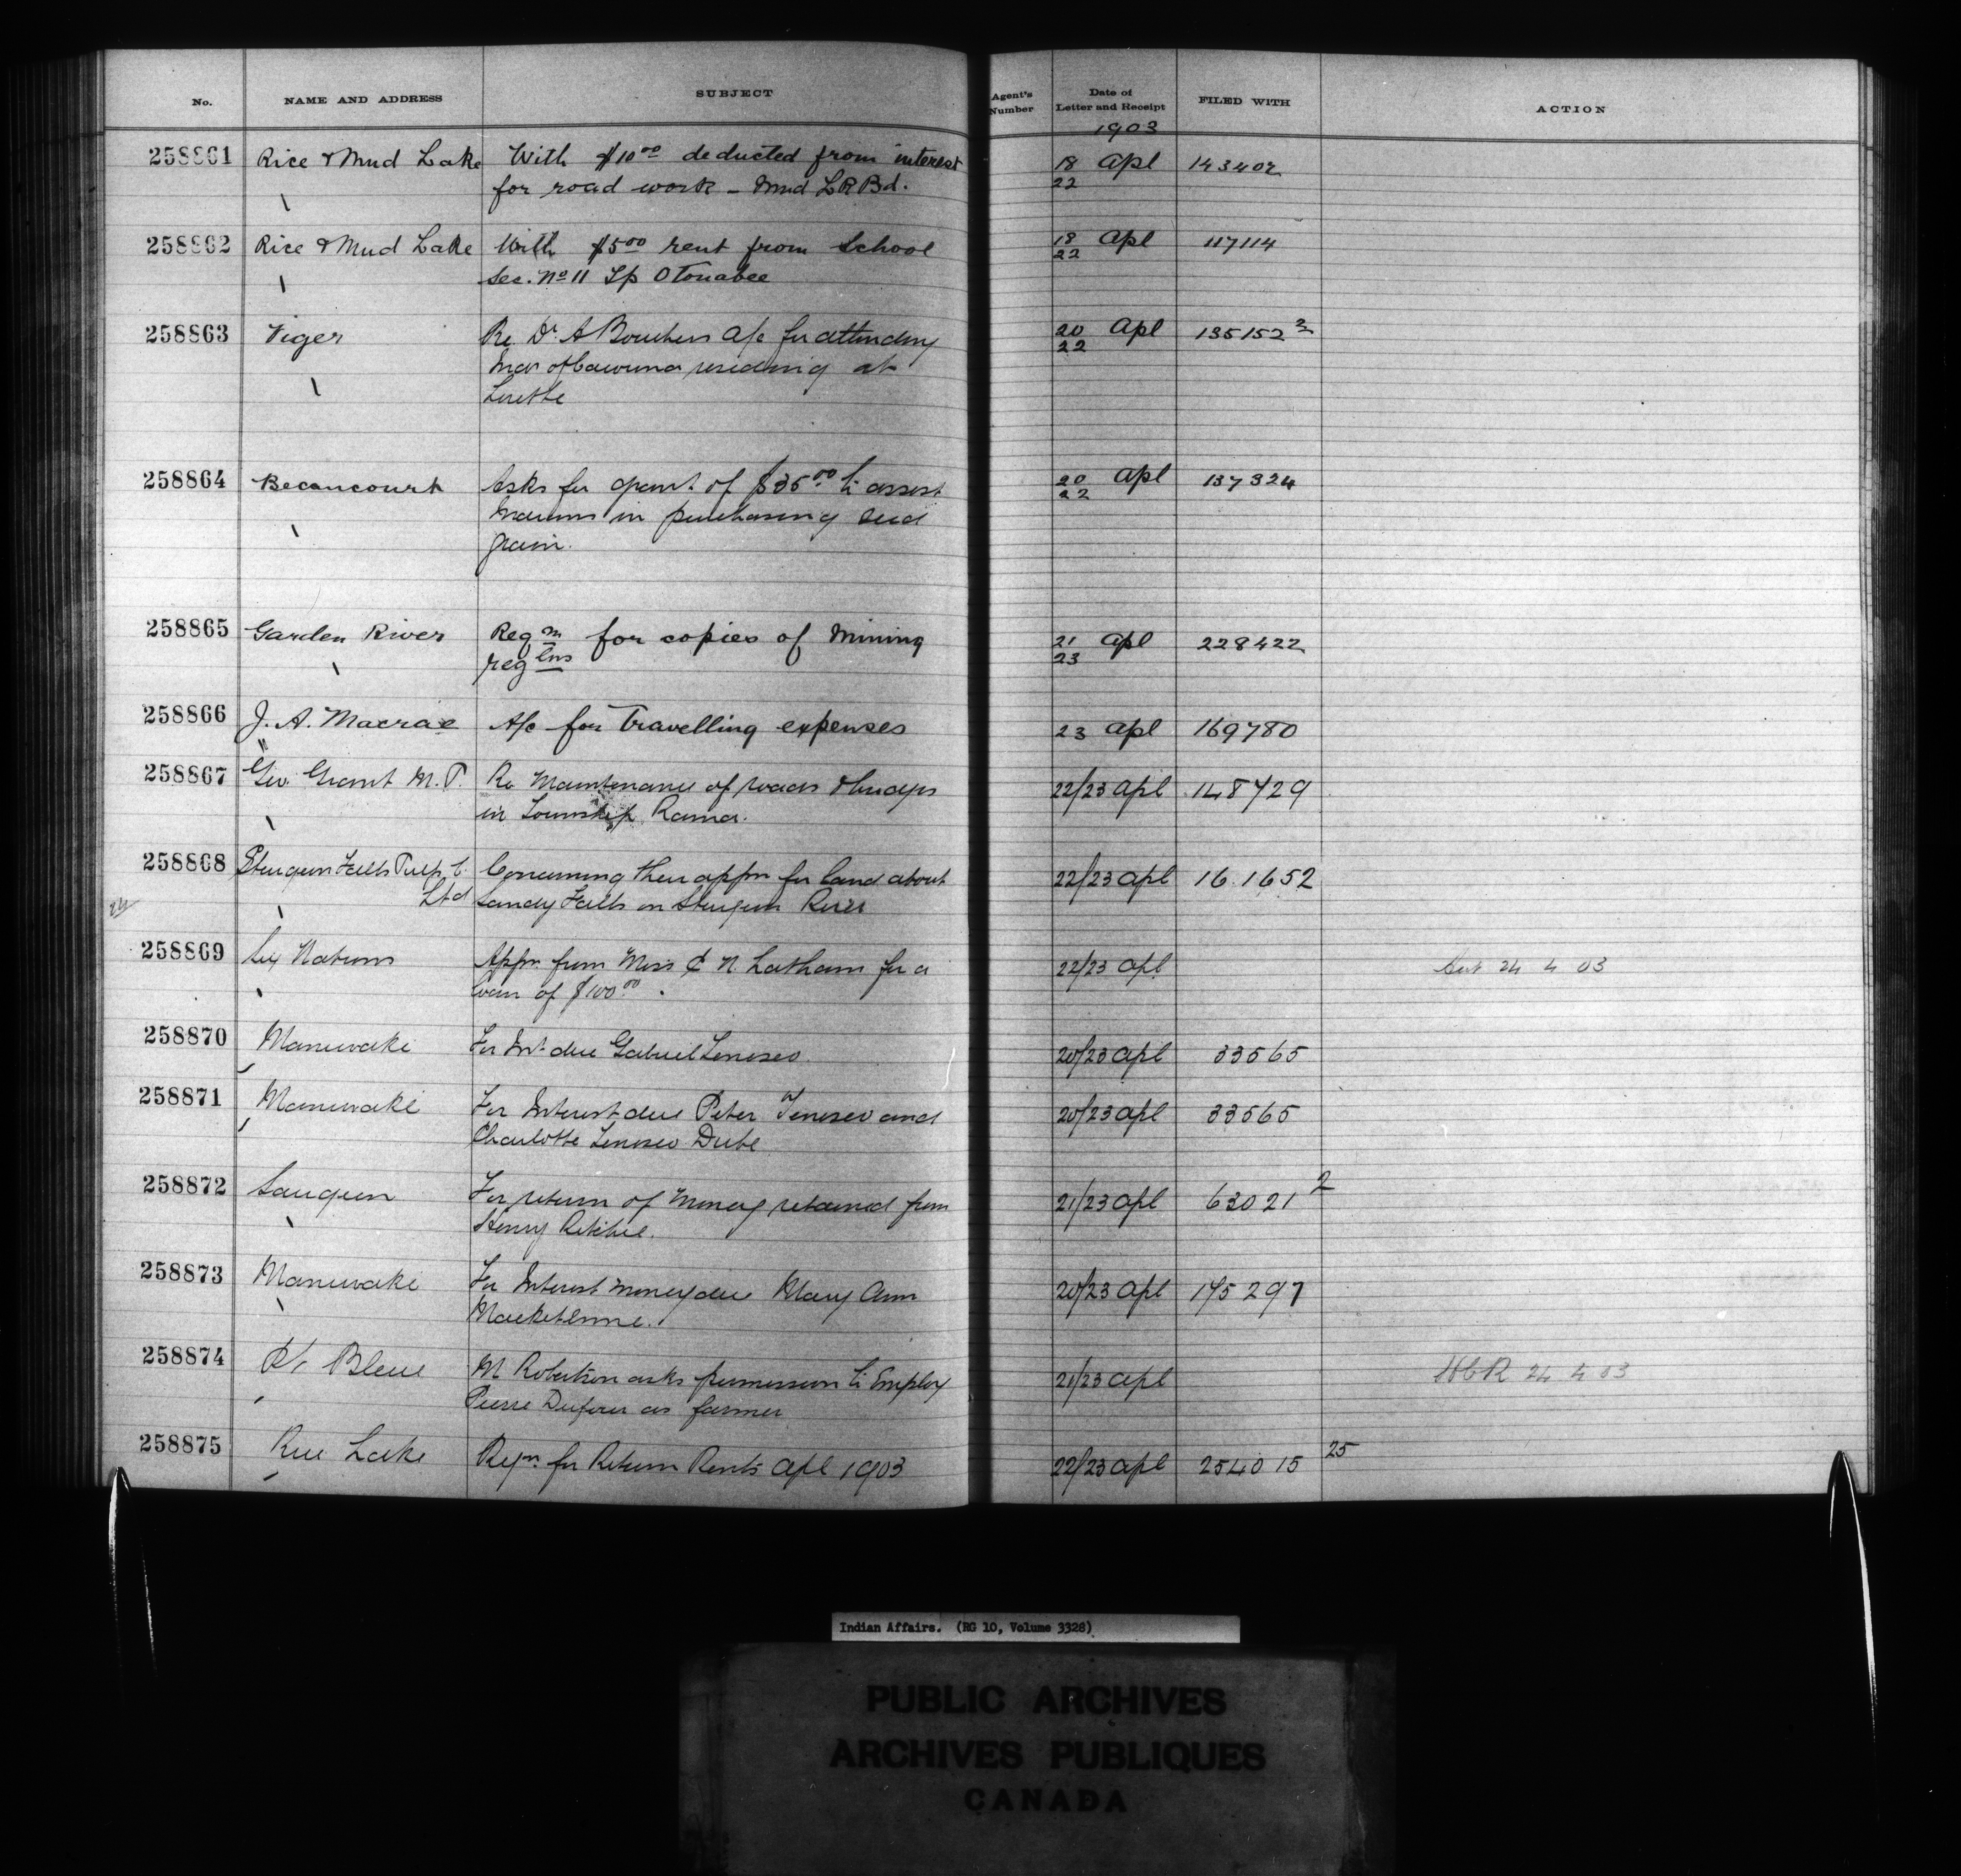 No. NAME AND ADDRESS SUBJECT Agent's Number Date of Letter and Receipt FILED WITH ACTION
1903
258861 Rice & Mud Lake With $10.00 deducted from interest 18 Apl 143402
for road work – Mud L R Bd. 22
258862 Rice & Mud Lake With $5.00 rent from School 18 Apl 117114
Sec. No 11 Tp Otonabee 22
258863 Viger Re Dr A Bouchers a/c for attending 20 Apl 135152 2
residing at 22
Lorette
258864 Becancourt Asks for grant of $35.00 to assist 20 Apl 137324
Indians in purchasing seed 22
grain.
258865 Garden River Reqn for copies of Mining 21 Apl 228422
reglns 23
258866 J. A. Macrae A/c for Travelling expenses 23 Apl 169780
258867 Geo Grant M.P. Re Maintenance of roads & bridges 22/23 Apl 148729
in Township Rama.
258868 Sturgeon Falls Pulp C. Concerning their appn for land about 22/23 Apl 161652
Ltd Sandy Falls on Sturgeon River
258869 Six Nations Appn. from Mrs C N Latham for a 22/23 Apl 24 4 03
loan of $100.00.
258870 Maniwaki For Int. due Gabriel Tenesco. 20/23 Apl 33565
258871 Maniwaki For Interest due Peter Tenesco and 20/23 Apl 33565
Charlotte Tenesco Dube
258872 Saugeen For return of money retained from 21/23 Apl 63021 2
Henry Ritchie.
258873 Maniwaki For Interest money due Mary Ann 20/23 Apl 175297
258874 Pt. Bleue M Robertson asks permission to Employ 21/23 Apl 24 4 03
Pierre Dufour as farmer
258875 Rice Lake Reqn. for Return Rents Apl 1903 22/23 Apl 254015 25
Indian Affairs. (RG 10, Volume 3328)
PUBLIC ARCHIVES
ARCHIVES PUBLIQUES
CANADA